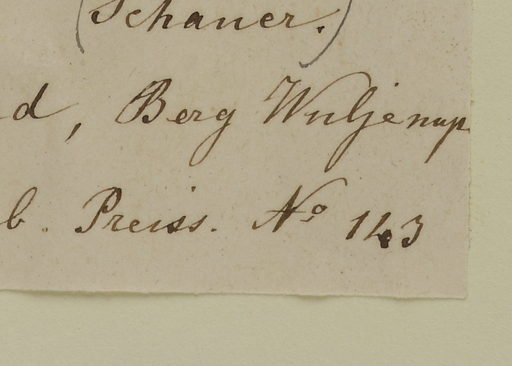 (Schauer.)
d, Berg Wuljenup
b. Preiss. No 143